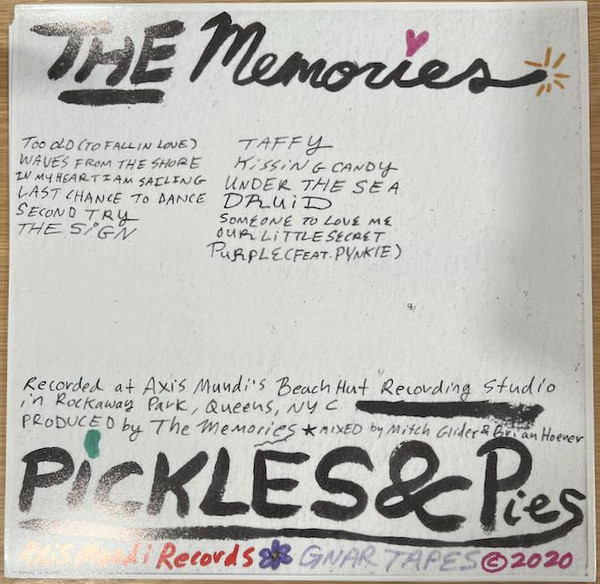 THE Memories
TOO OLD (TO FALL IN LOVE)
WAVES FROM THE SHORE
IN MY HEART I AM SAILING
LAST CHANCE TO DANCE
SECOND TRY
THE SIGN
TAFFY
KISSING CANDY
UNDER THE SEA
DRUID
SOMEONE TO LOVE ME
OUR LITTLE SECRET
PURPLE (FEAT. PYNKIE)
Recorded at Axis Mundi's Beach Hut Recording Studio
in Rockaway Park, Queens, NYC
PRODUCED by The Memories ★ MIXED by Mitch Glider & Brian Hoever
PiCKLES & Pies
Axis Mundi Records GNAR TAPES © 2020